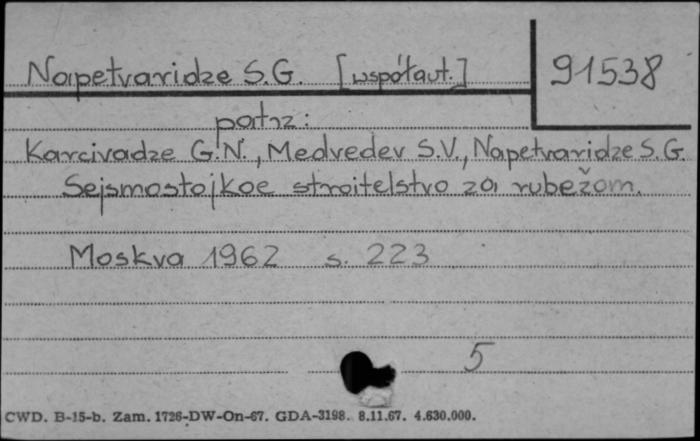 Napetvaridze S.G. [współaut.] 91538
patrz:
Karcivadze G.N., Medvedev S.V., Napetvaridze S.G.
Sejsmostojkoe stroitelstvo za rubežom.
Moskva 1962 s. 223
5
CWD. B-15-b. Zam. 1726-DW-On-67. GDA-3198. 8.11.67. 4.630.000.